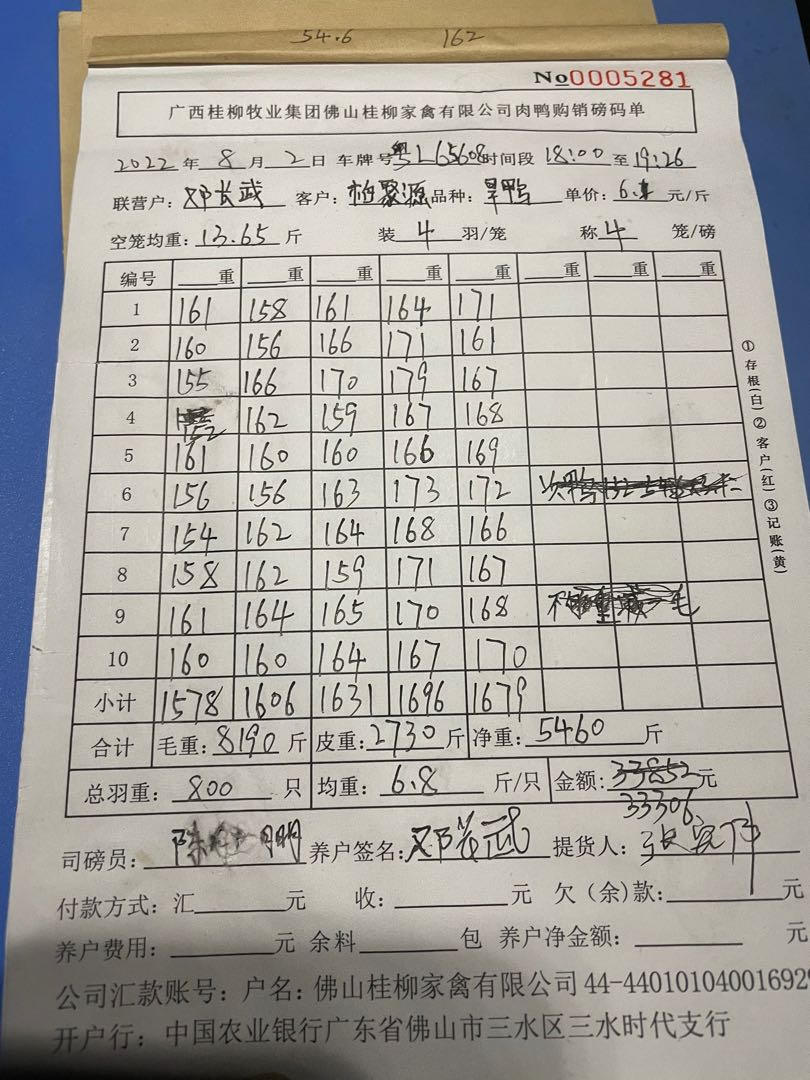 54.6 162
No0005281
广西桂柳牧业集团佛山桂柳家禽有限公司肉鸭购销磅码单
2022年 8月 2日 车牌号粤L65608时间段 18:00 至19:26
联营户:邓长武 客户:柏聚源 品种:旱鸭 单价:6.1 元/斤
空笼均重:13.65 斤 装 4 羽/笼 称 4 笼/磅
编号 重 重 重 重 重 重 重 重
1 161 158 161 164 171
2 160 156 166 171 161
3 155 166 170 179 167
4 152 162 159 167 168
5 161 160 160 166 169
6 156 156 163 173 172
7 154 162 164 168 166
8 158 162 159 171 167
9 161 164 165 170 168
10 160 160 164 167 170
小计 1578 1606 1631 1696 1679
合计 毛重:8190 斤 皮重:2730 斤 净重:5460 斤
总羽重:800 只 均重:6.8 斤/只 金额:33852元
33306
司磅员: 养户签名:邓长武 提货人:
付款方式:汇 元 收: 元 欠(余)款: 元
养户费用: 元 余料 包 养户净金额: 元
公司汇款账号:户名:佛山桂柳家禽有限公司 44-440101040016929
开户行:中国农业银行广东省佛山市三水区三水时代支行
①存根(白)②客户(红)③记账(黄)